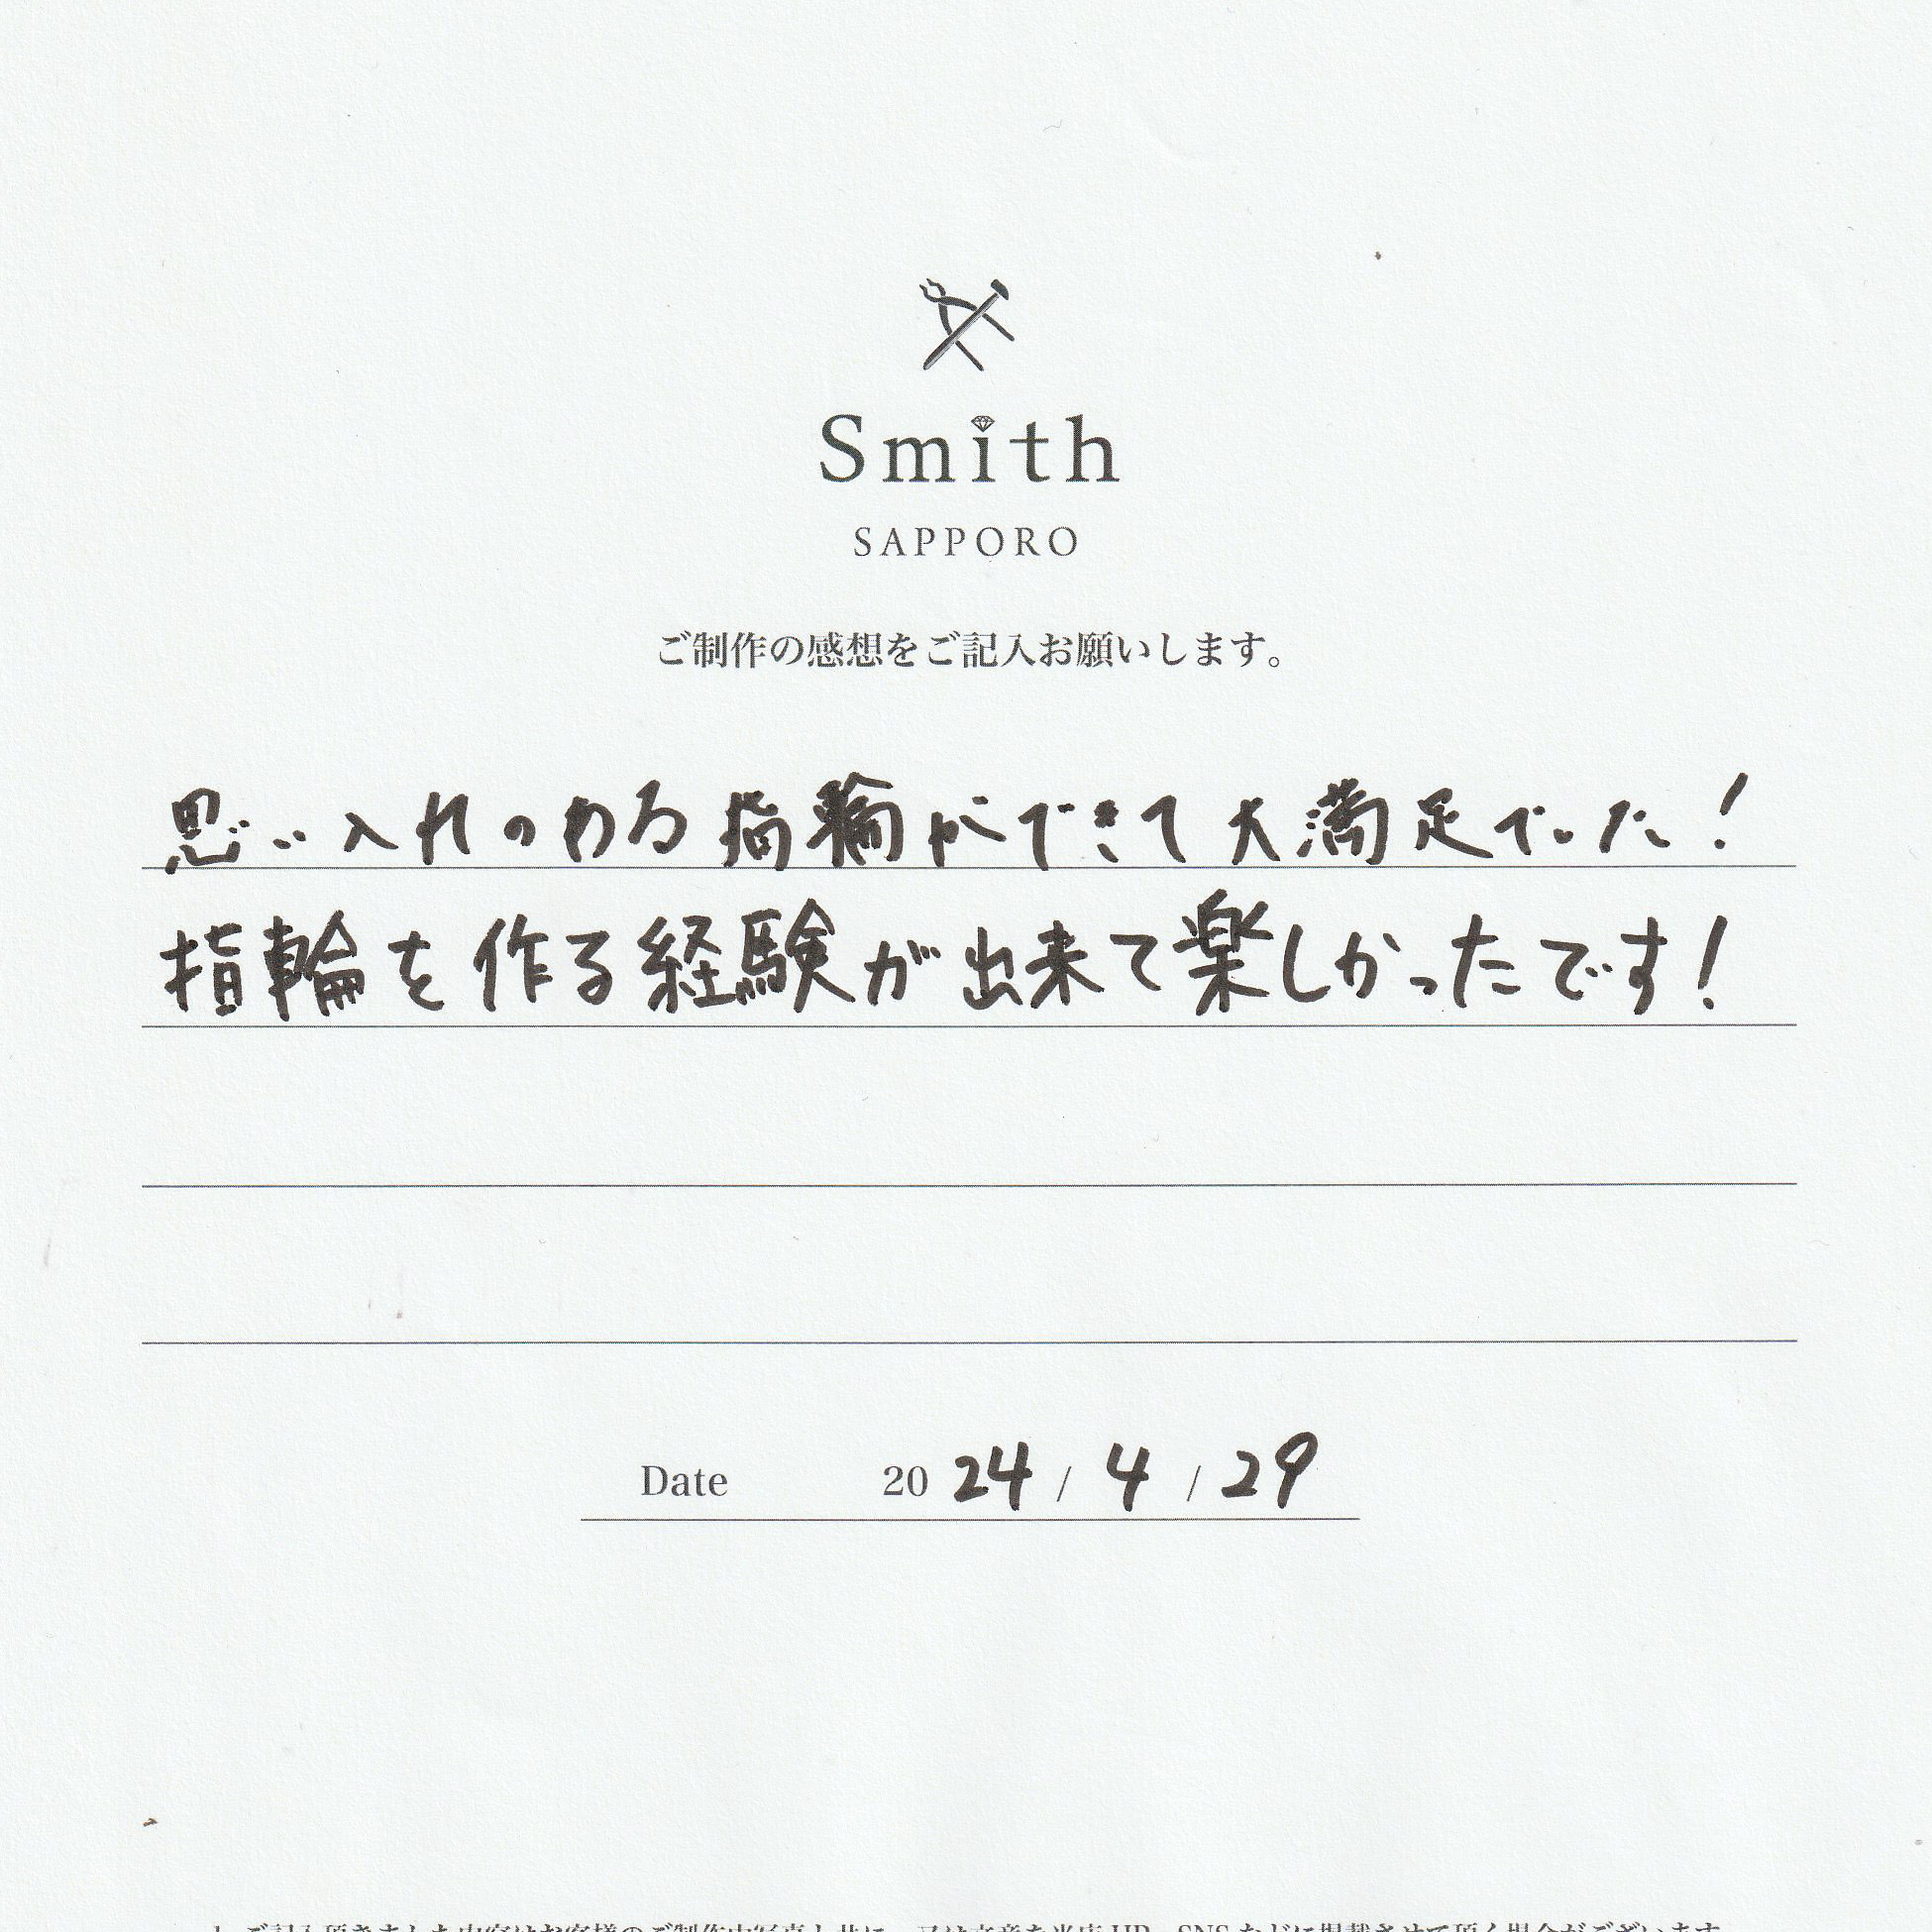 Smith
SAPPORO
ご制作の感想をご記入お願いします。
思い入れのある指輪ができて大満足でした!
指輪を作る経験が出来て楽しかったです!
Date 2024 / 4 / 29